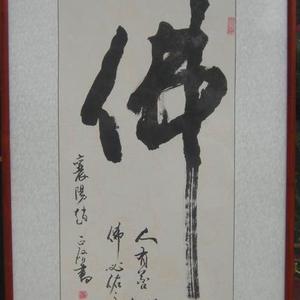 佛
人有善
佛必佑
襄陽趙書